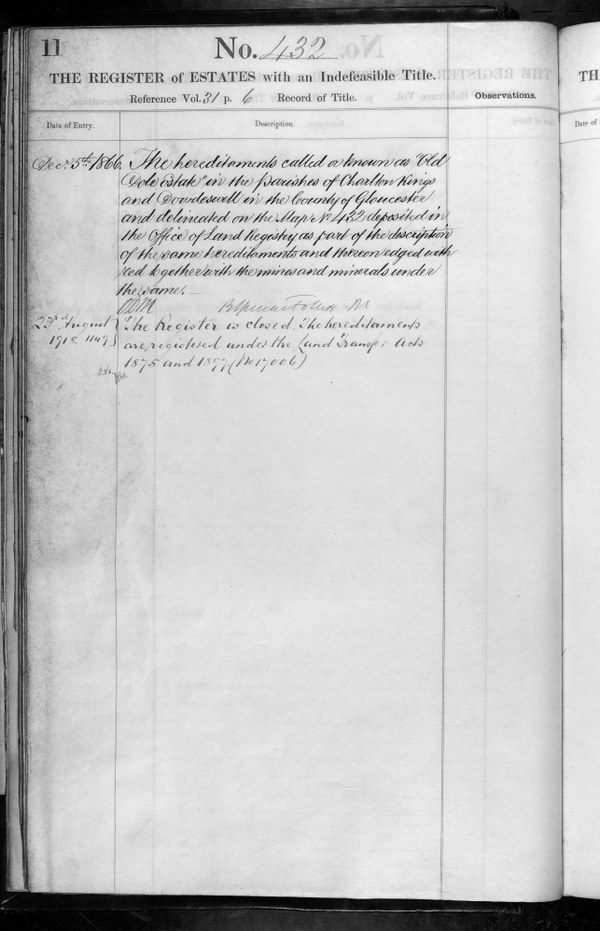 11
No. 432
THE REGISTER of ESTATES with an Indefeasible Title.
Reference Vol. 31 p. 6 Record of Title.
Observations.
Date of Entry.
Description.
Dec.r 5th 1866.
The hereditaments called or known as "Old
Dole Estate" in the parishes of Charlton Kings
and Dowdeswell in the County of Gloucester
and delineated on the Map No 432 deposited in
the Office of Land Registry as part of the description
of the same hereditaments and thereon edged with
red together with the mines and minerals under
the same.
23rd August
1918. 1149
The Register is closed. The hereditaments
are registered under the Land Transfer Acts
1875 and 1897 (No 17006)
TH
Date of